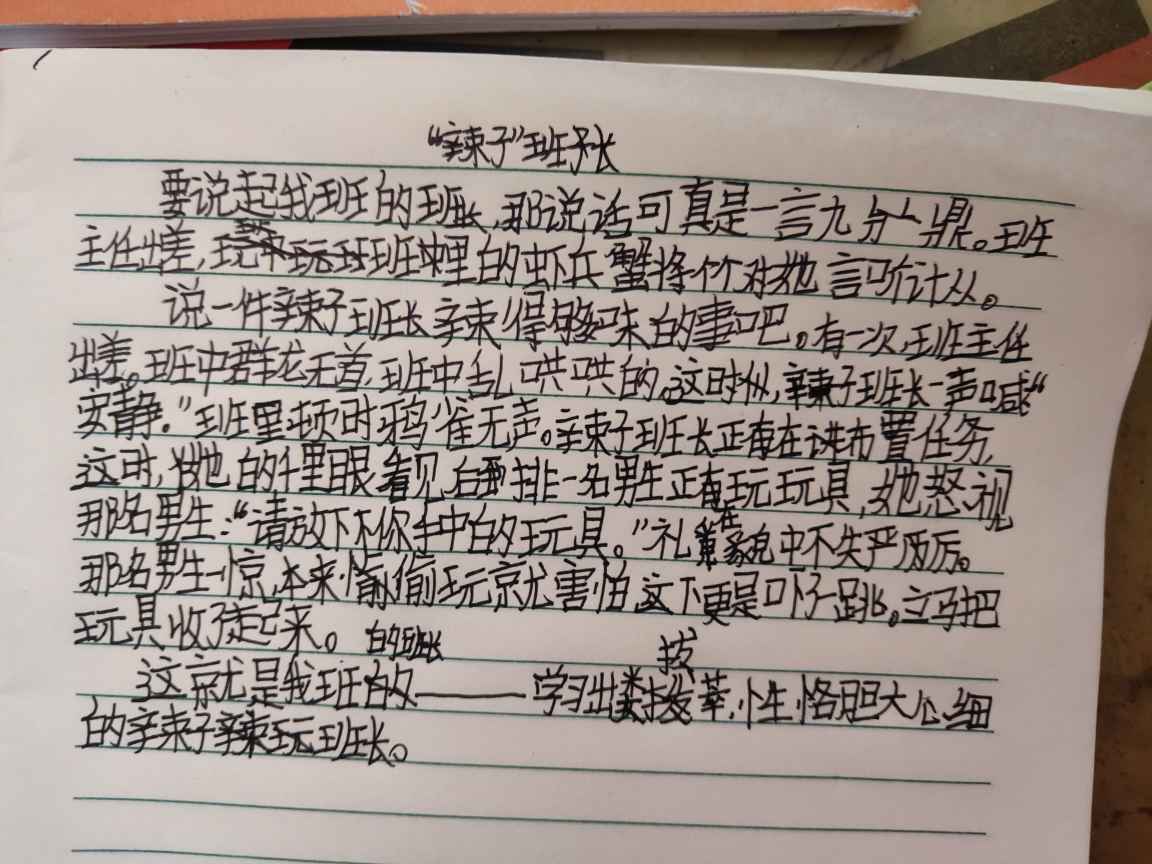 “辣子”班长
要说起我班的班长,那说话可真是一言九鼎。班
主任出差,班里的虾兵蟹将个个对她言听计从。
说一件辣子班长辣得够味的事吧。有一次,班主任
出差。班中群龙无首,班中乱哄哄的,这时候,辣子班长一声喊“
安静。”班里顿时鸦雀无声。辣子班长正在讲布置任务,
这时,她的千里眼看见后排一名男生正在玩玩具,她怒视
那名男生:“请放下你手中的玩具。”礼貌中不失严厉。
那名男生一惊,本来偷偷玩就害怕,这下更是吓一跳。立马把
玩具收了起来。
这就是我班的班长——学习出类拔萃,性格胆大心细
的辣子班长。